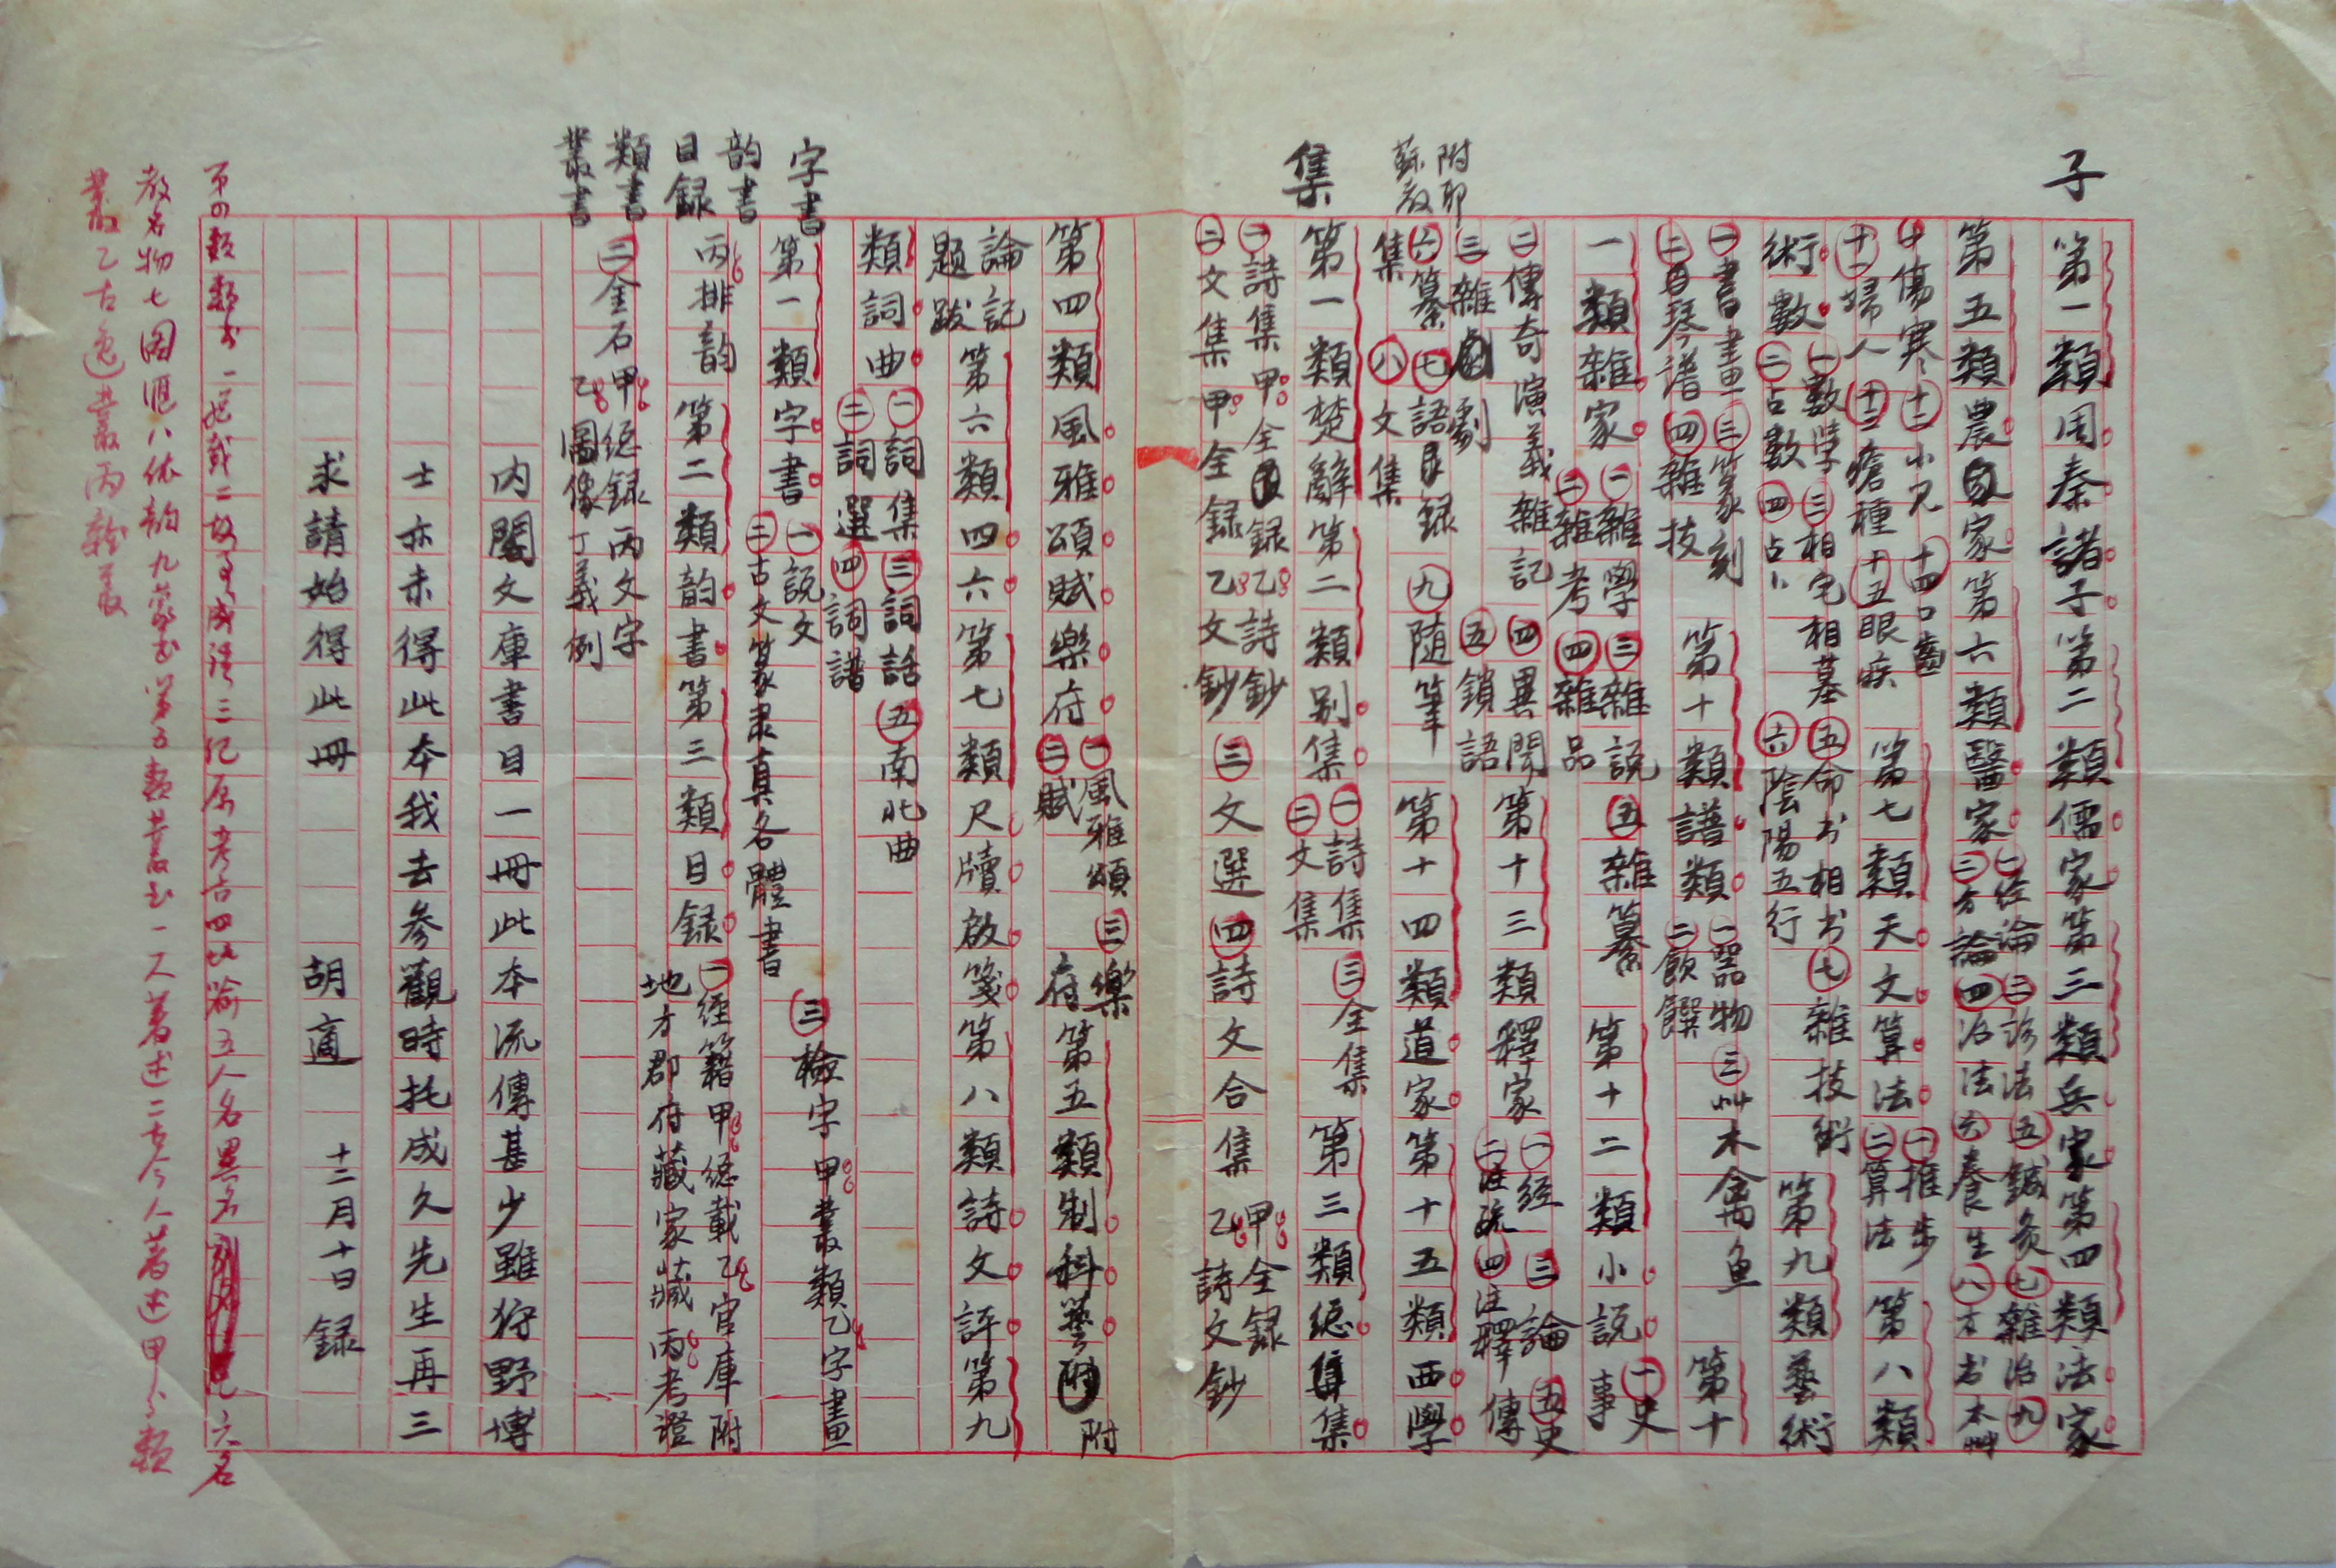 子
第一類周秦諸子第二類儒家第三類兵家第四類法家
第五類農家第六類醫家㊁經論㊂診法㊄鍼灸㊆雜治㊈
㊂方論㊃治法㊅養生㊇方书本艸
㊉傷寒十二小兒十四口齒
十一婦人十三瘡種十五眼疾
第七類天文算法㊀推步
㊁算法
第八類
術數㊀數學㊂相宅相墓㊄命书相书㊆雜技術
㊁占數㊃占卜㊅陰陽五行
第九類藝術
㊀書畫㊂篆刻
㊁琴譜㊃雜技
第十類譜類㊀器物㊂艸木禽魚
㊁飲饌
第十
一類雜家㊀雜學㊂雜說㊄雜纂
㊁雜考㊃雜品
第十二類小説㊀史
事
㊁傳奇演義雜記㊃異聞
㊂雜劇㊄鎖語
第十三類釋家㊀經㊂論㊄史
㊁注疏㊃注釋傳
附耶
蘇教
㊅纂㊆語录録㊈随筆
集㊇文集
第十四類道家第十五類西學
集
第一類楚辭第二類别集㊀詩集㊂全集
㊁文集
第三類總集
㊀詩集甲全録乙詩鈔
㊁文集甲全録乙文鈔
㊂文選㊃詩文合集甲全録
乙詩文鈔
第四類風雅頌賦樂府㊀風雅頌㊂樂
㊁賦府
第五類制科藝附
論記
題跋
第六類四六第七類尺牘啟箋第八類詩文評第九
類詞曲㊀詞集㊂詞話㊄南北曲
㊁詞選㊃詞譜
字書
第一類字書㊀説文
㊁古文篆隶真各體書
㊂檢字甲叢類乙字畫
韵書
目録
類書
叢書
丙排韵第二類韵書第三類目録㊀經籍甲總載乙官庫附
地方郡府藏家藏丙考證
㊁金石甲總録丙文字
乙圖像丁義例
内閣文庫書目一冊此本流傳甚少雖狩野博
士亦未得此本我去参觀時托成久先生再三
求請始得此冊 胡適 十二月十日録
㐧四類類书一記載二故事成語三紀原考古四比喻五人名異名六名
教名物七图匯八依韵九蒙书第五類叢书一一人著述二古今人著述甲分類
叢乙古逸叢丙雜叢